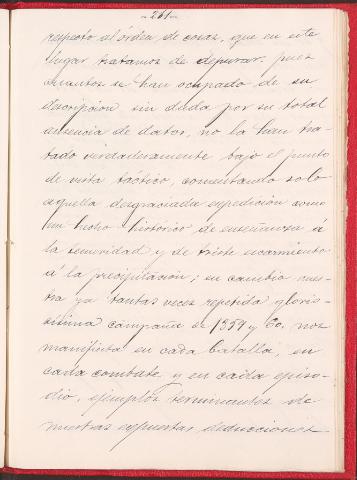 -261-
respecto al órden de cosas, que en este
lugar tratamos de depurar. pues
cuantos se han ocupado de su
descripcion sin duda por su total
ausencia de datos, no la han tra-
tado verdaderamente bajo el punto
de vista táctico, comentando solo
aquella desgraciada espedicion como
un hecho histórico de enseñanza á
la temeridad y de triste escarmiento
á la precipitación; en cambio nues-
tra ya tantas veces repetida glorio-
sisima campaña de 1859 y 60, nos
manifiesta en cada batalla, en
cada combate y en cada episo-
dio, ejemplos terminantes de
nuestras espuestas deducciones